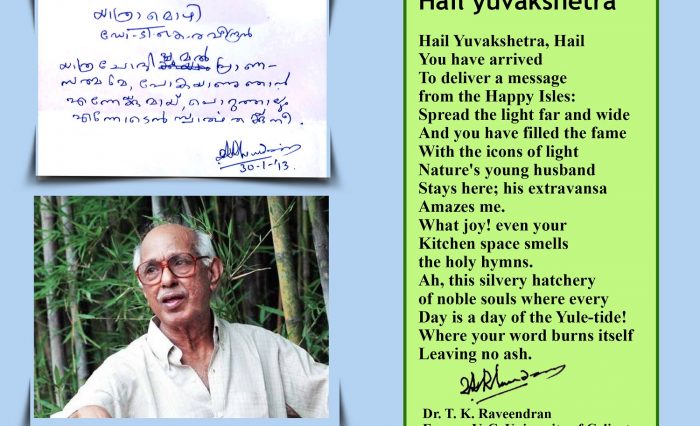 യാത്രാമൊഴി
ഡോ. ടി. കെ. രവീന്ദ്രൻ
യാത്ര മൽ പ്രാണ-
പോകയാണു ഞാൻ
എന്നേക്കുമായ്, പൊറുത്താലും
എന്നോടെൻ നീ.
30-1-'13
Hail yuvakshetra
Hail Yuvakshetra, Hail
You have arrived
To deliver a message
from the Happy Isles:
Spread the light far and wide
And you have filled the fame
With the icons of light
Nature's young husband
Stays here; his extravansa
Amazes me.
What joy! even your
Kitchen space smells
the holy hymns.
Ah, this silvery hatchery
of noble souls where every
Day is a day of the Yule-tide!
Where your word burns itself
Leaving no ash.
Dr. T. K. Raveendran
University of Calicut